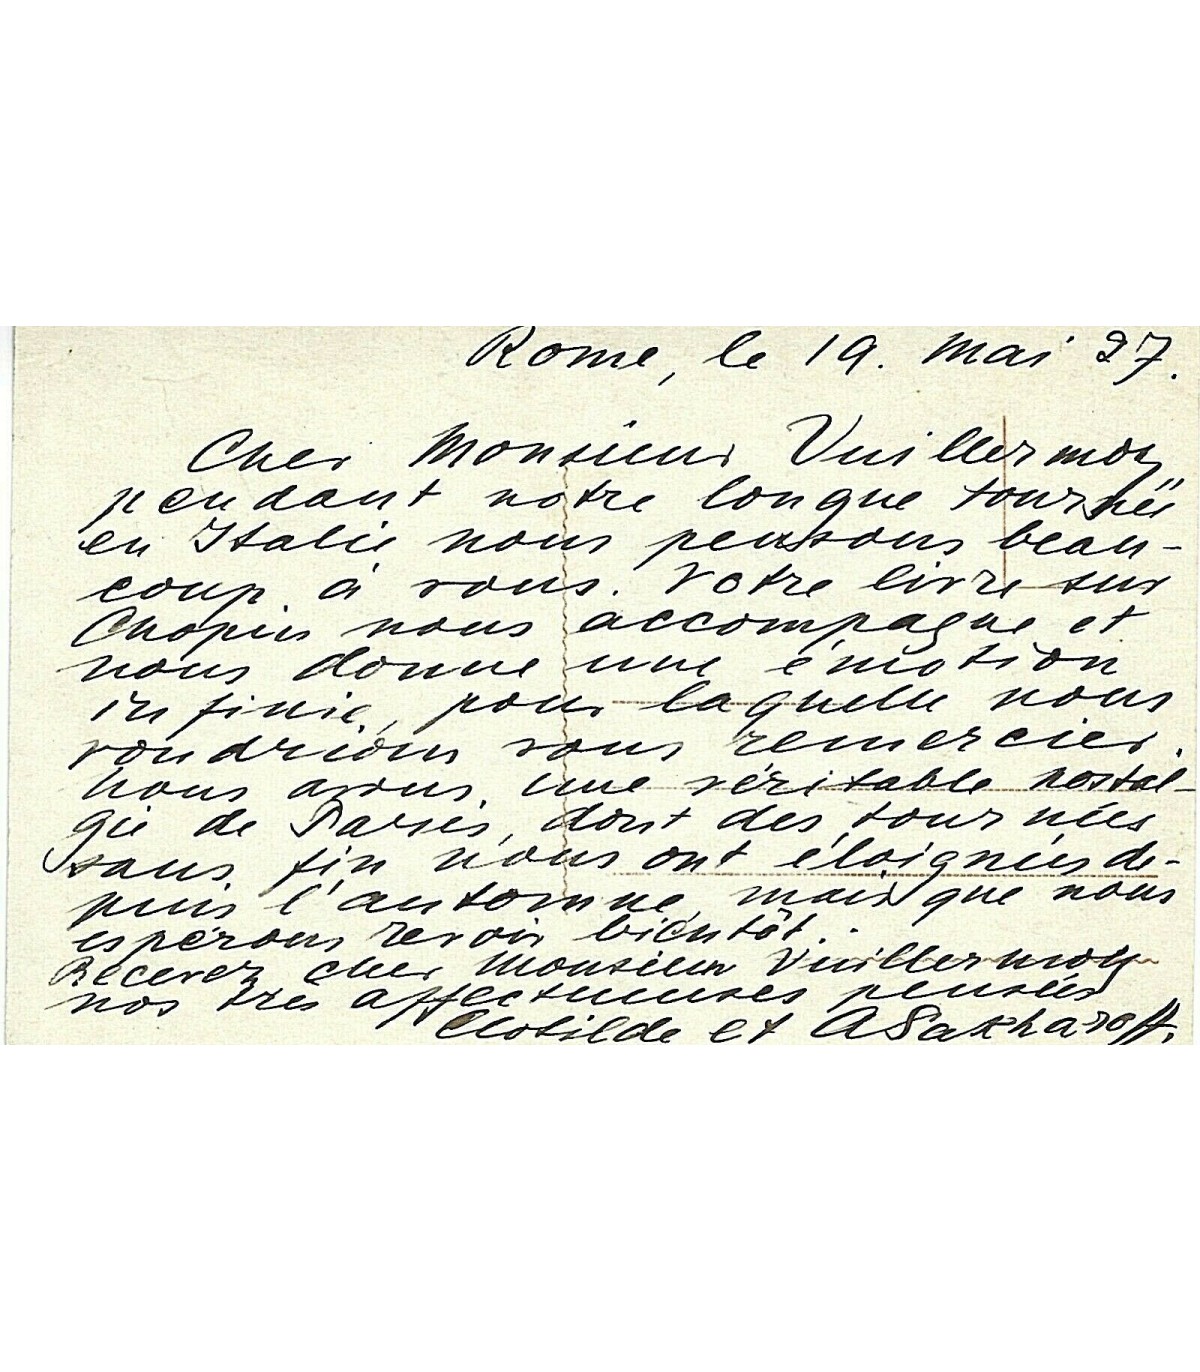 Rome, le 19. Mai 27.
Cher Monsieur Vuillermoz,
pendant notre longue tournée
en Italie nous pensons beau-
coup à vous. Votre livre sur
Chopin nous accompagne et
nous donne une émotion
infinie, pour laquelle nous
voudrions vous remercier.
Nous avons une véritable nostal-
gie de Paris, dont des tournées
sans fin nous ont éloignés de-
puis l'automne, mais que nous
espérons revoir bientôt.
Recevez cher Monsieur Vuillermoz
nos très affectueuses pensées
Clotilde et A Sakharoff.